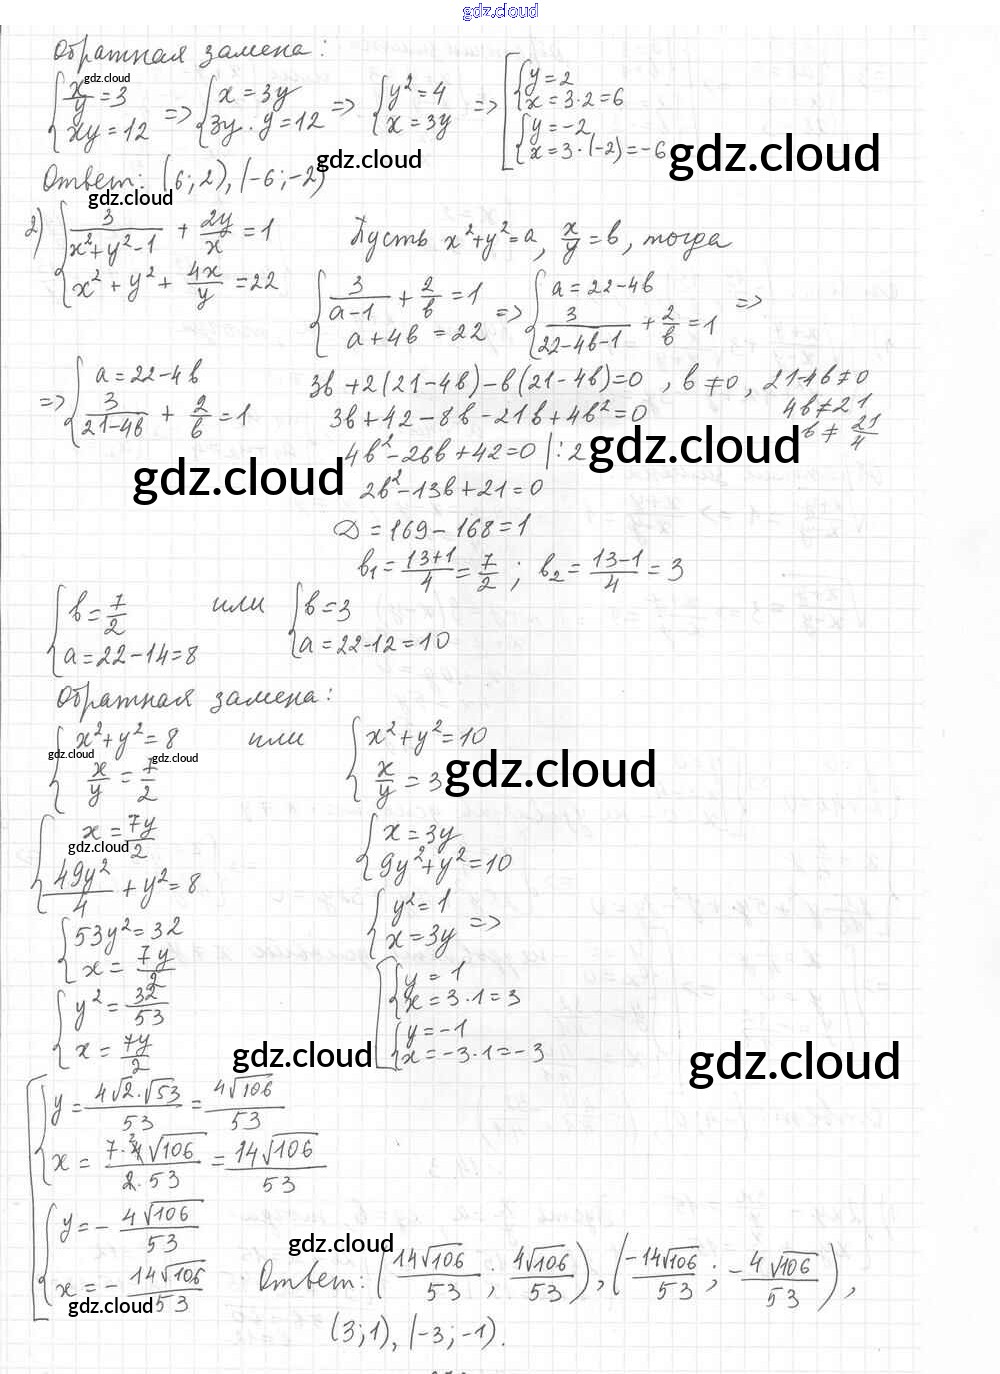 gdz.cloud
Обратная замена:
{ x/y = 3 ; xy = 12 => { x = 3y ; 3y · y = 12 => { y² = 4 ; x = 3y => [ { y = 2 ; x = 3·2 = 6 ; { y = -2 ; x = 3·(-2) = -6
gdz.cloud
gdz.cloud
gdz.cloud
Ответ: (6; 2), (-6; -2)
gdz.cloud
2) { 3/(x²+y²-1) + 2y/x = 1 ; x² + y² + 4x/y = 22
Пусть x²+y² = a, x/y = b, тогда
{ 3/(a-1) + 2/b = 1 ; a + 4b = 22 => { a = 22-4b ; 3/(22-4b-1) + 2/b = 1 =>
=> { a = 22-4b ; 3/(21-4b) + 2/b = 1
3b + 2(21-4b) - b(21-4b) = 0 , b ≠ 0, 21-4b ≠ 0
3b + 42 - 8b - 21b + 4b² = 0
4b ≠ 21
b ≠ 21/4
4b² - 26b + 42 = 0 |:2
gdz.cloud
gdz.cloud
2b² - 13b + 21 = 0
D = 169 - 168 = 1
b₁ = (13+1)/4 = 7/2 ; b₂ = (13-1)/4 = 3
{ b = 7/2 ; a = 22-14 = 8 или { b = 3 ; a = 22-12 = 10
Обратная замена:
{ x²+y² = 8 ; x/y = 7/2 или { x²+y² = 10 ; x/y = 3
gdz.cloud
gdz.cloud
gdz.cloud
{ x = 7y/2 ; 49y²/4 + y² = 8
{ x = 3y ; 9y²+y² = 10
gdz.cloud
{ 53y² = 32 ; x = 7y/2
{ y² = 1 ; x = 3y =>
{ y² = 32/53 ; x = 7y/2
[ { y = 1 ; x = 3·1 = 3 ; { y = -1 ; x = -3·1 = -3
gdz.cloud
gdz.cloud
[ { y = 4√2·√53/53 = 4√106/53
x = 7·4√106/2·53 = 14√106/53
{ y = - 4√106/53
x = - 14√106/53
gdz.cloud
gdz.cloud
Ответ: (14√106/53 ; 4√106/53), (-14√106/53 ; - 4√106/53),
(3; 1), (-3; -1).